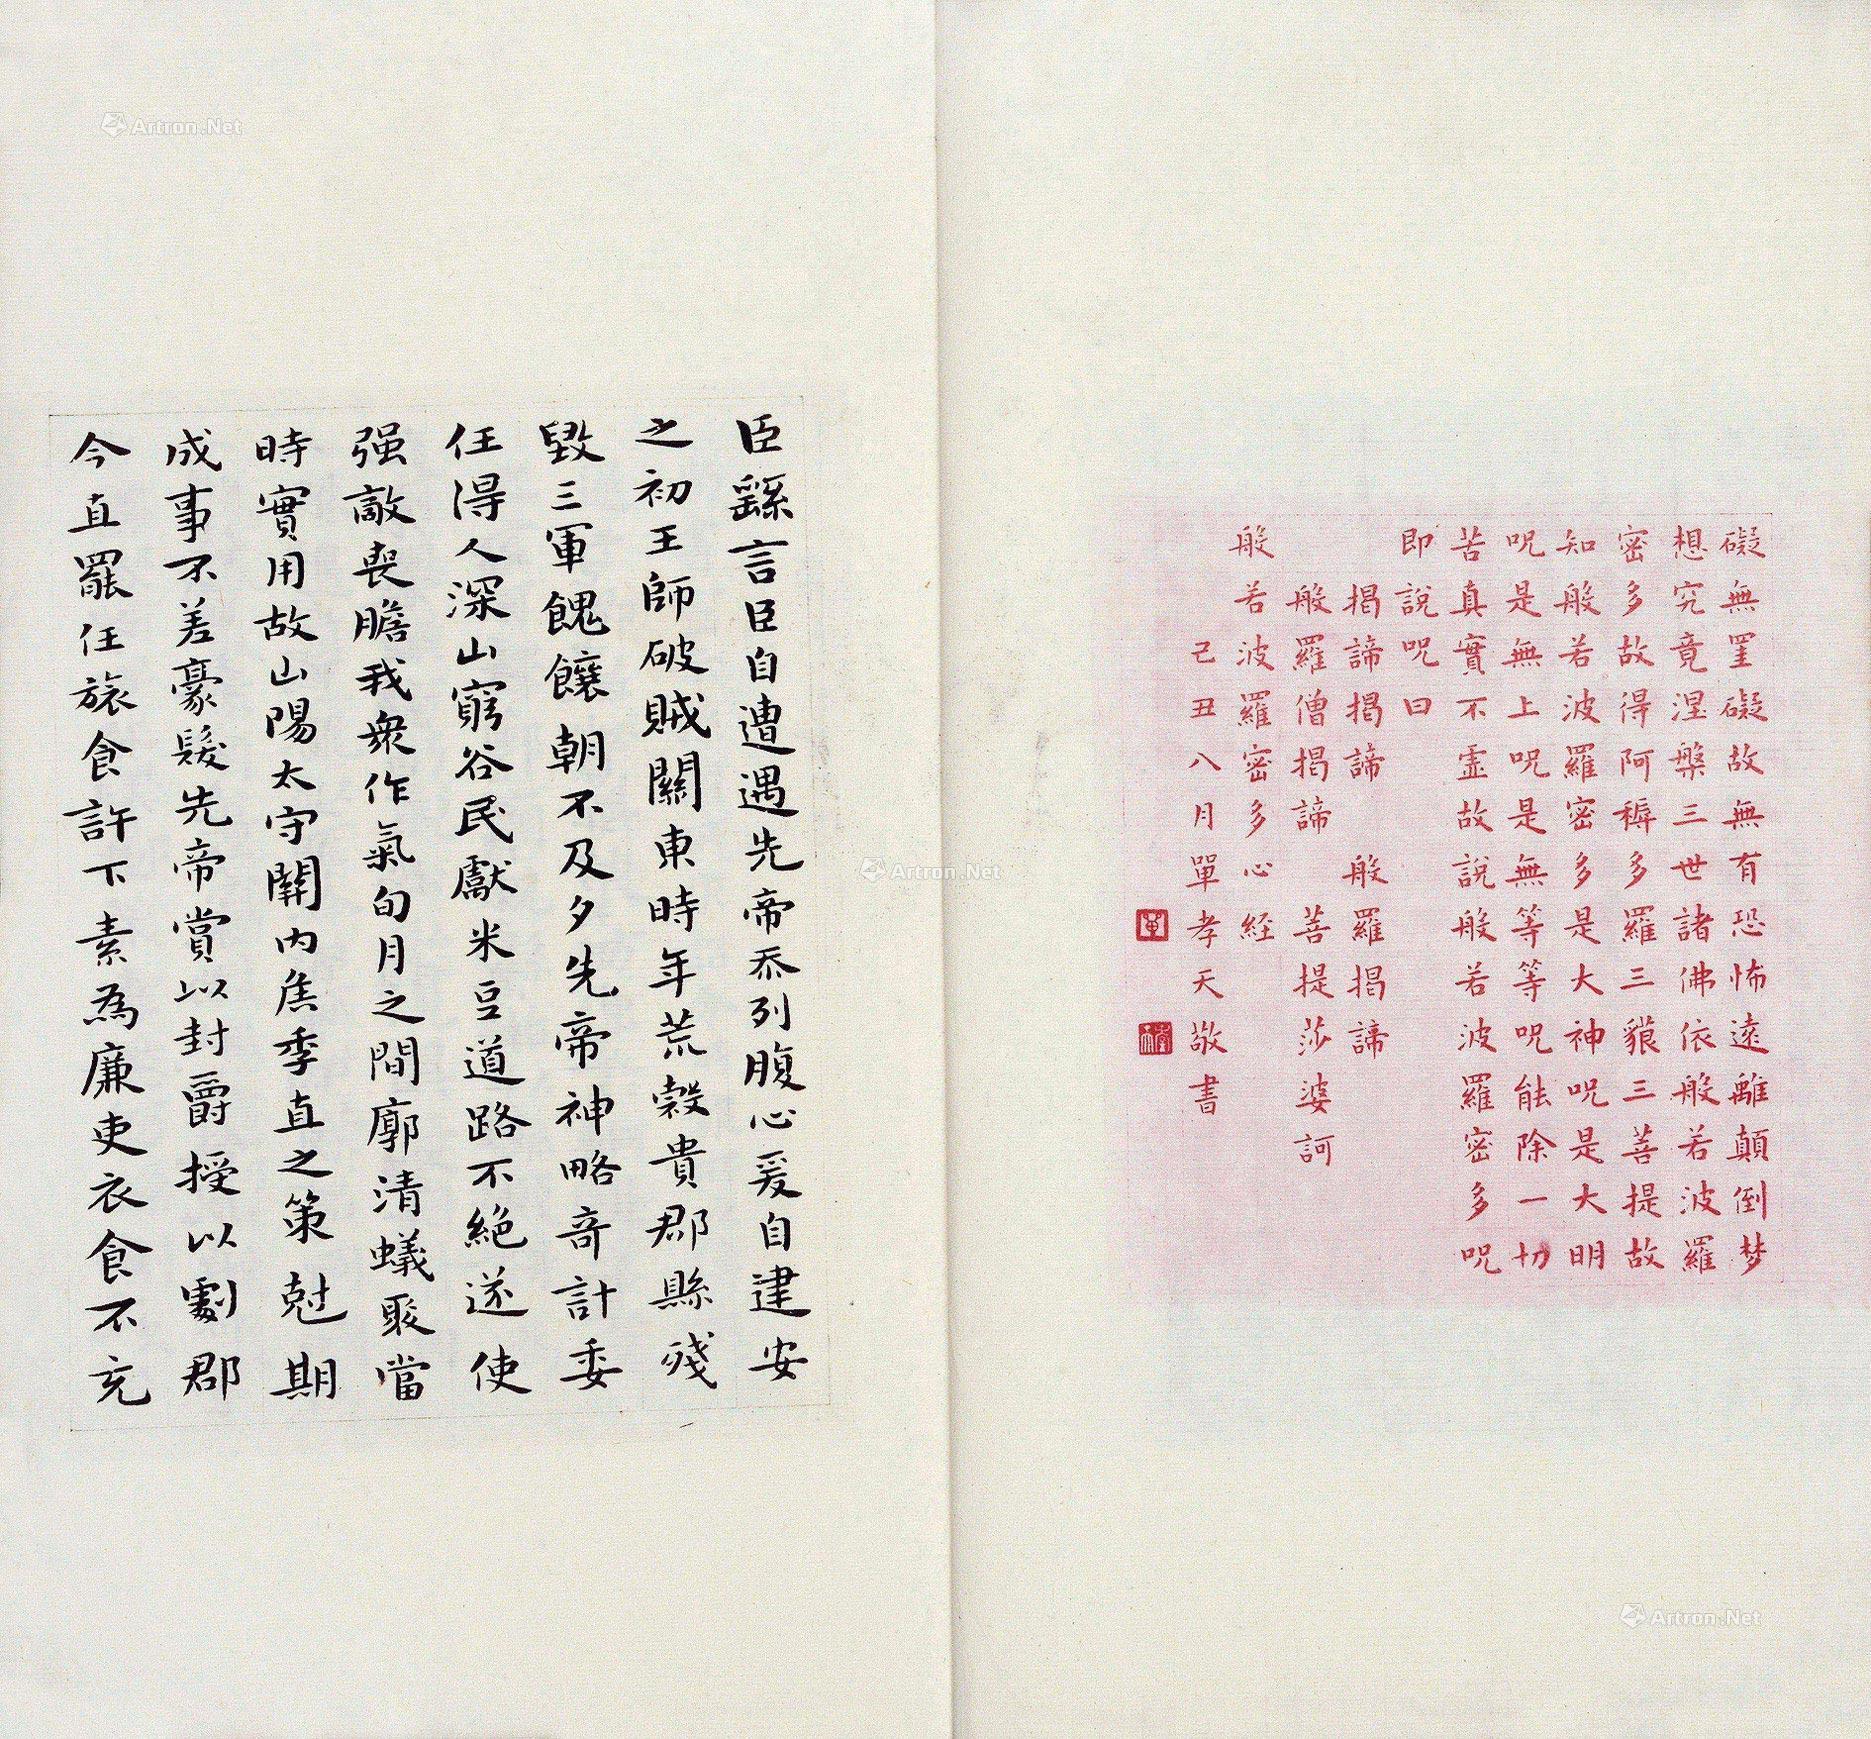 礙無罣礙故無有恐怖遠離顛倒梦
想究竟涅槃三世諸佛依般若波羅
密多故得阿耨多羅三藐三菩提故
知般若波羅密多是大神呪是大明
呪是無上呪是無等等呪能除一切
苦真實不虛故說般若波羅密多呪
即說呪曰
揭諦揭諦 般羅揭諦
般羅僧揭諦 菩提莎婆訶
般若波羅密多心経
己丑八月單孝天敬書
臣繇言臣自遭遇先帝忝列腹心爰自建安
之初王師破賊關東時年荒穀貴郡縣殘
毀三軍餽饟朝不及夕先帝神略奇計委
任得人深山窮谷民獻米豆道路不絕遂使
强敵喪膽我衆作氣旬月之間廓清蟻聚當
時實用故山陽太守關內侯季直之策尅期
成事不差豪髮先帝賞以封爵授以劇郡
今直罷任旅食許下素為廉吏衣食不充
Artron.Net
Artron.Net
Artron.Net